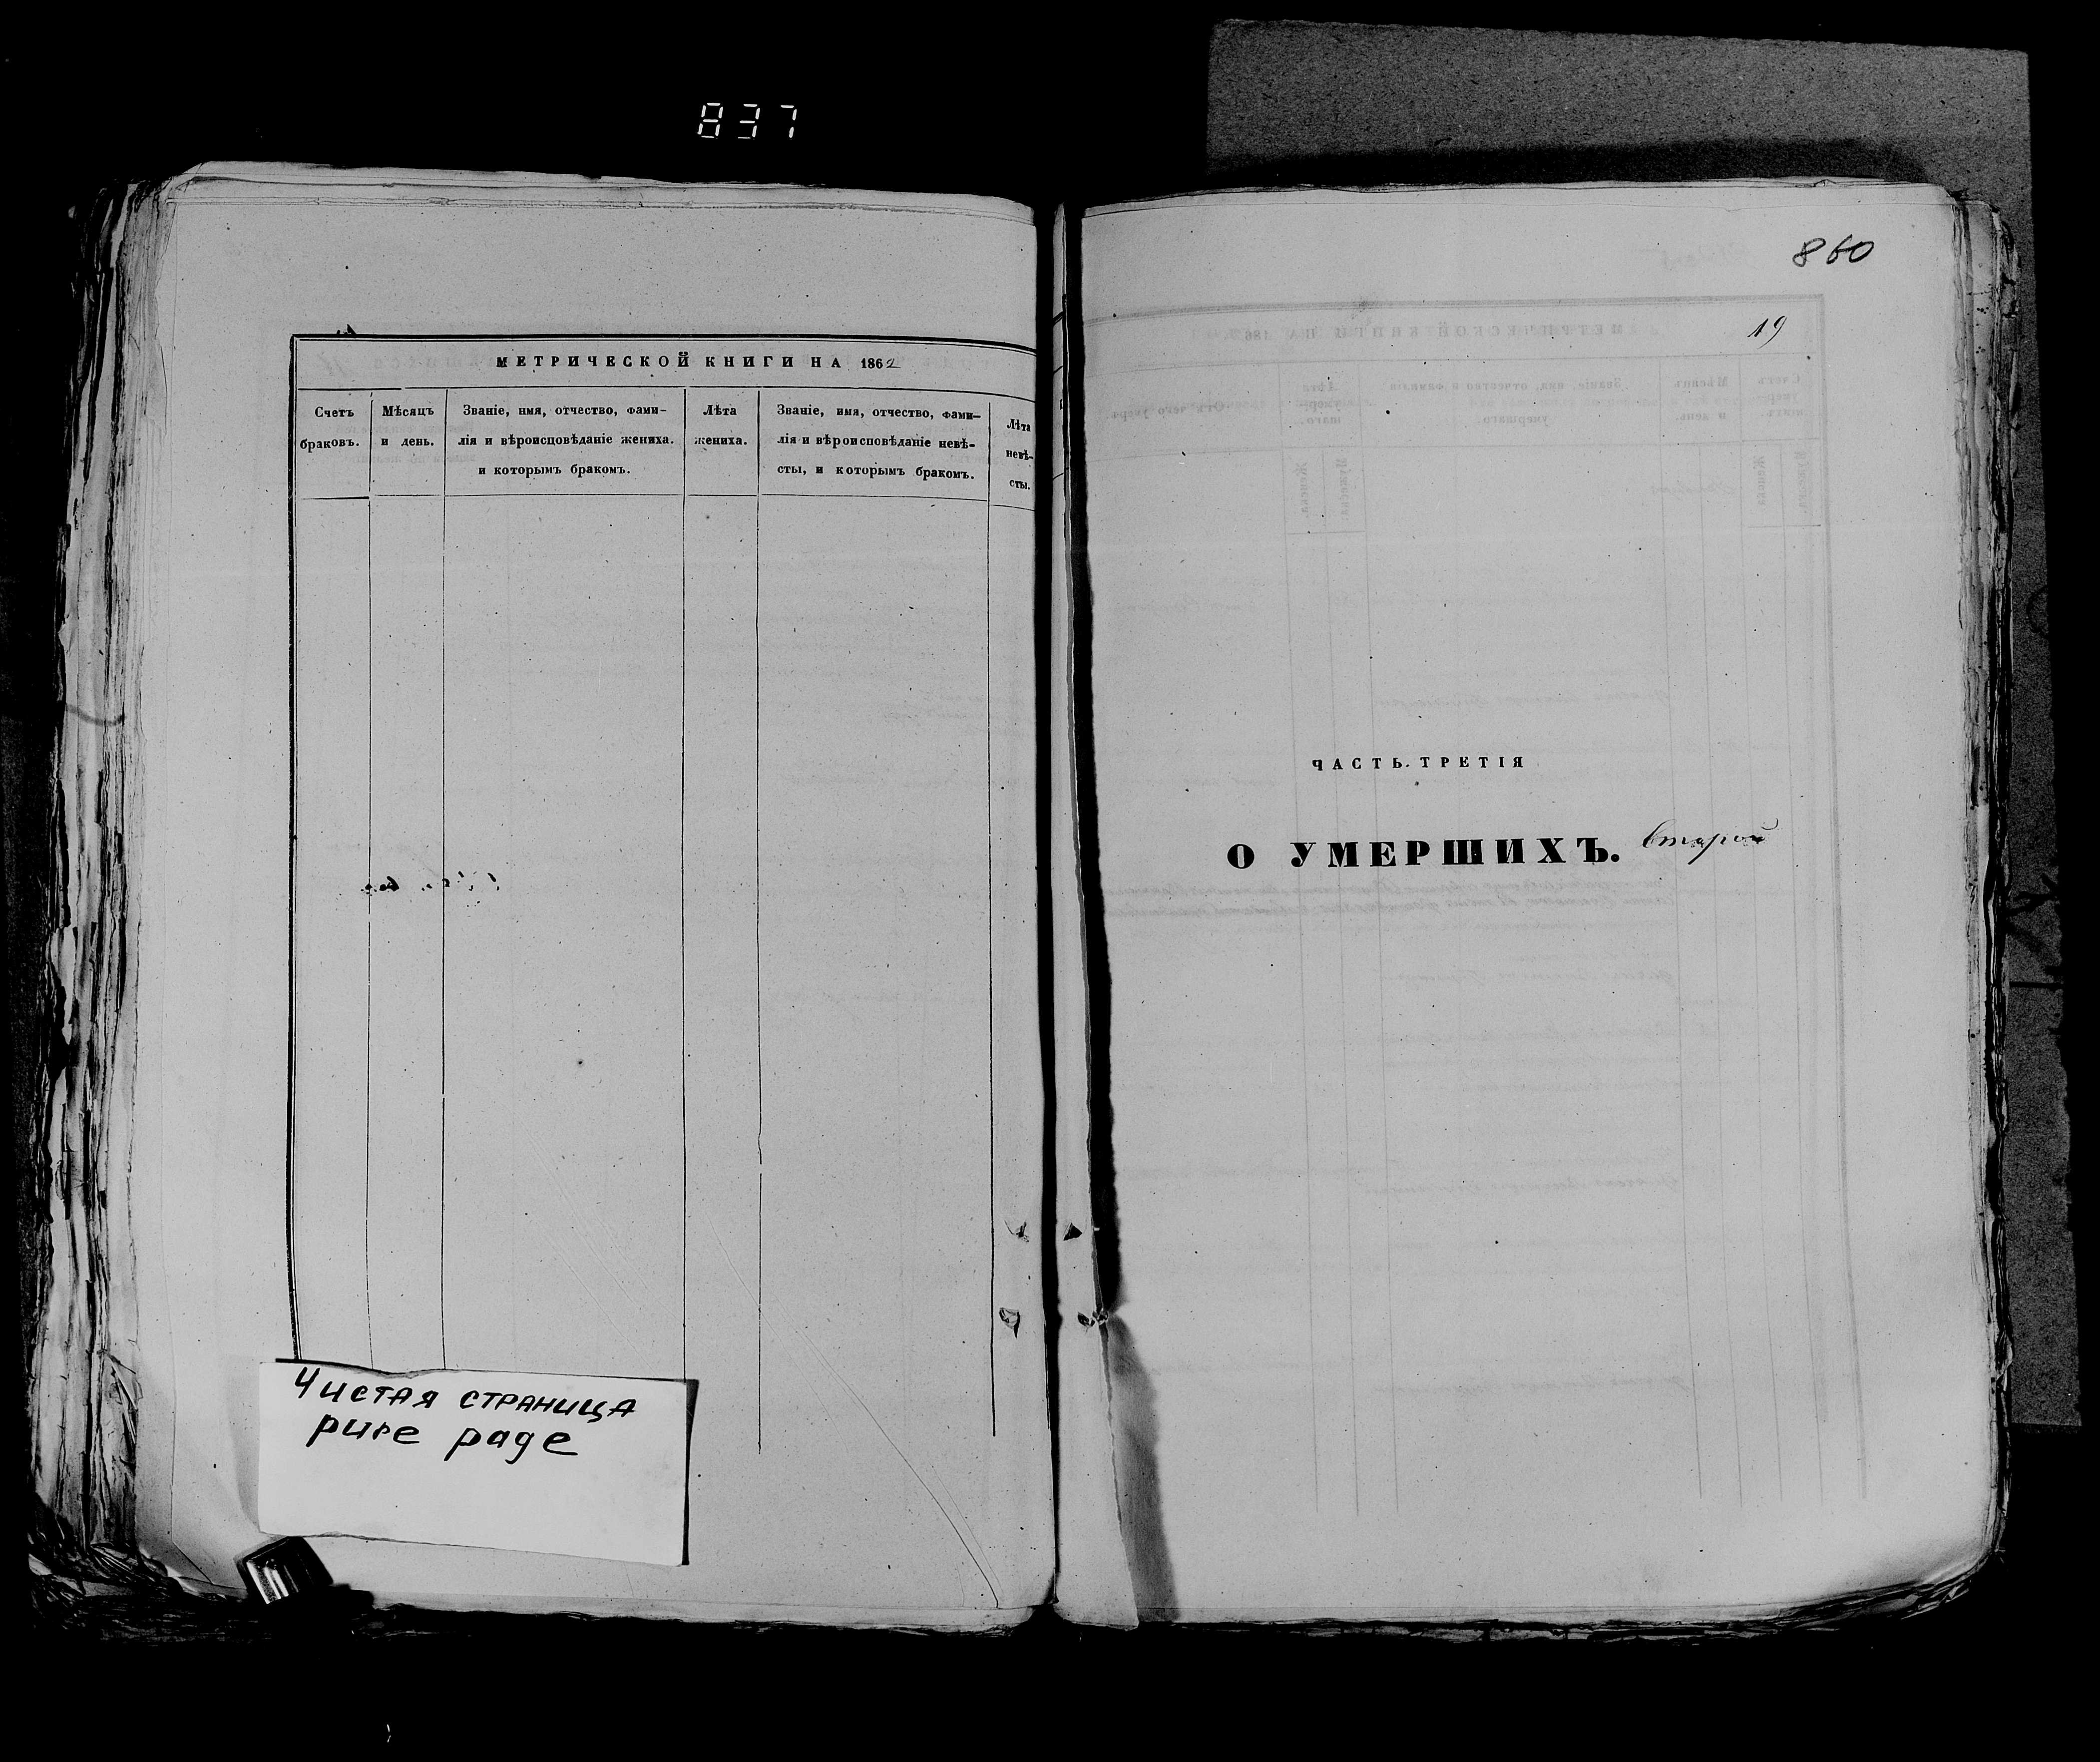 837
МЕТРИЧЕСКОЙ КНИГИ НА 1862
Счетъ
браковъ.
Мѣсяцъ
и день.
Званіе, имя, отчество, фами-
лія и вѣроисповѣданіе жениха.
и которымъ бракомъ.
Лѣта
жениха.
Званіе, имя, отчество, фами-
лія и вѣроисповѣданіе невѣ-
сты, и которымъ бракомъ.
Лѣта
невѣ-
сты.
Чистая страница
pure page
860
19
ЧАСТЬ ТРЕТІЯ
О УМЕРШИХЪ. второй